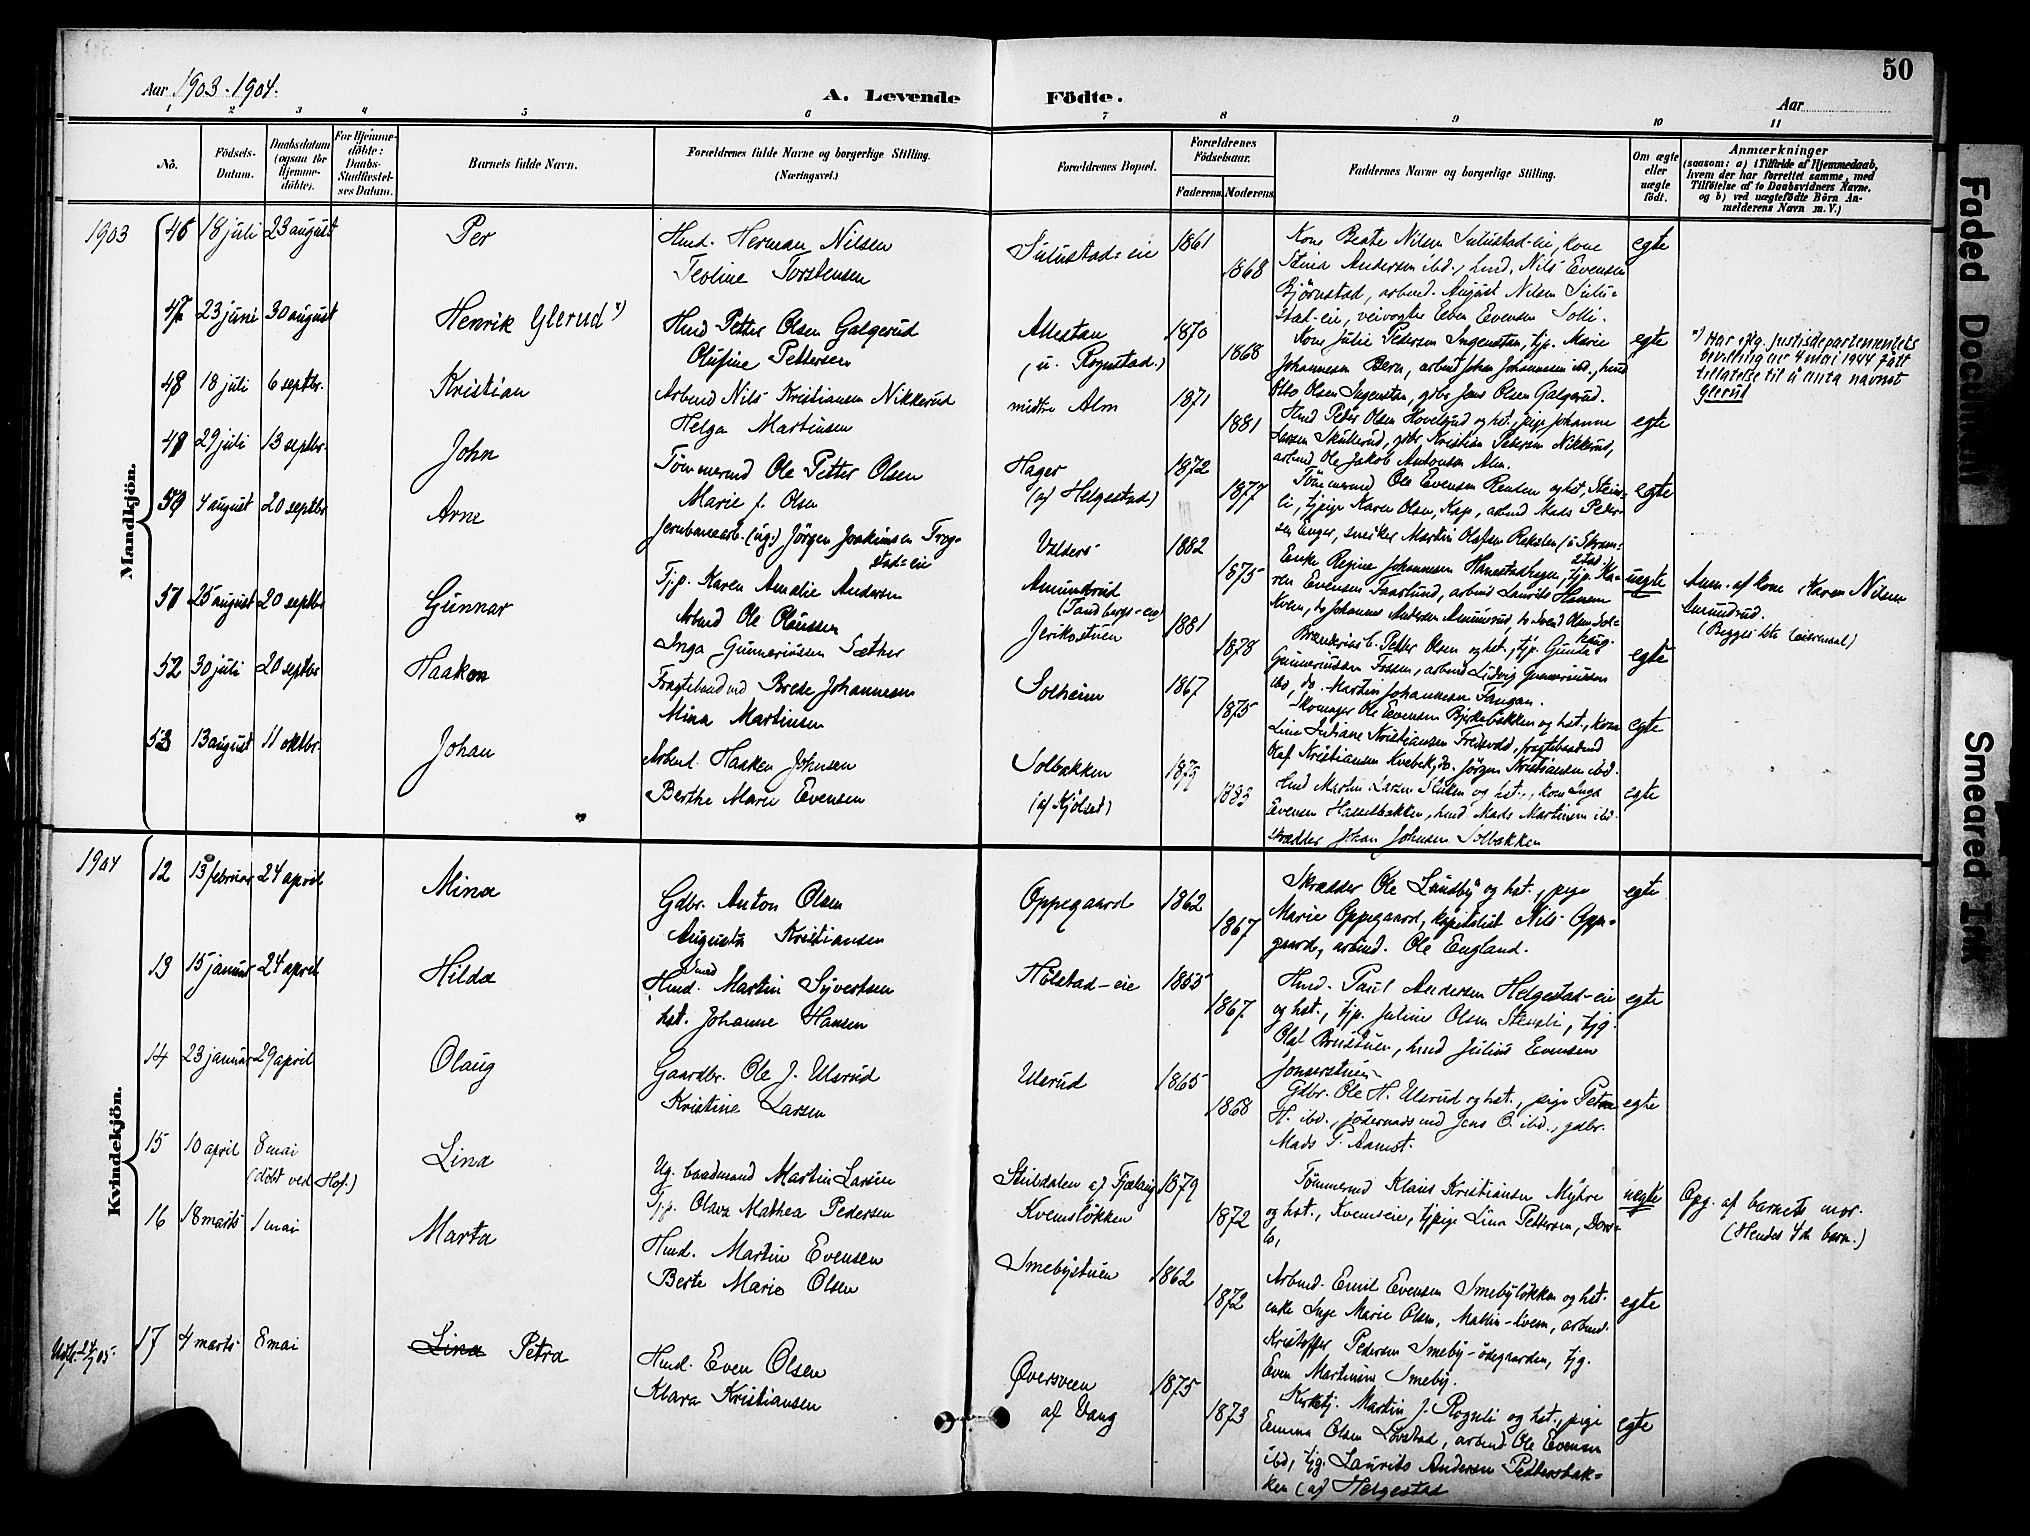 50
Aar 1903-1904.
A. Levende Födte.
Aar
1 2 3 4 5 6 7 8 9 10 11
No.
Födsels-Datum.
Daabsdatum (ogsaa for Hjemmedöbte).
For Hjemmedöbte: Daabs-Stadfæstelses Datum.
Barnets fulde Navn.
Forældrenes fulde Navne og borgerlige Stilling. (Næringsvei.)
Forældrenes Bopæl.
Forældrenes Födselsaar.
Faderens. Moderens.
Faddernes Navne og borgerlige Stilling.
Om ægte eller uægte födt.
Anmærkninger
(saasom: a) i Tilfælde af Hjemmedaab, hvem der har forrettet samme, med Tilföielse af to Daabsvidners Navne. og b) ved uægtefödte Börn Anmelderens Navn m. V.)
Mandkjön.
1903 46 18 juli 23 august Per
Hmd. Herman Nilsen
Teoline Torstensen
Sulustad-eie 1861 1868
Kone Beate Nilsen Sulustad-eie, kone
Stina Andersen ibd., hmd. Nils Evensen
Bjørnstad, arbmd. August Nilsen Sulu-
stad-eie, veivogter Eben Evensen Solli.
egte
47 23 juni 30 august Henrik Glerud *)
Hmd Petter Olsen Galgerud
Olufine Pettersen
Allestau
(u. Rognstad.)
1870 1868
Kone Julie Petersen Ingensten, tjp. Marie
Johannesen Bern, arbmd Johan Johannesen ibd., hmd
Otto Olsen Ingensten, gdbr Jens Olsen Galgerud.
egte
*) Har iflg. Justisdepartementets
bevilling av 4 mai 1944 fått
tillatelse til å anta navnet
Glerud
48 18 juli 6 septbr. Kristian
Arbmd Nils Kristiansen Nikkerud
Helga Martinsen
midtre Alm 1871 1881
Hmd Peder Olsen Hovelsrud og hst., pige Johanne
Larsen Skullerud, gdbr Kristian Petersen Nikkrud,
arbmd Ole Jakob Antonsen Alm.
egte
49 29 juli 13 septbr. John
Tömmermd Ole Petter Olsen
Marie f. Olsen
Hager
(af Helgestad)
1872 1877
Tömmermd Ole Evensen Renden og hst, Stein-
li, tjpige Karen Olsen, Kap, arbmd Mads Peter-
sen Enger, snedker Martin Olafsen
egte
50 4 august 20 septbr Arne
Jernbanearb. (ug.) Jörgen Joakimsen Frog-
stad-eie
Tj.p. Karen Amalie Andersen
Valders
Amundrud
(Sandbergs-eie)
1882 1875
Enke Regine Johannesen Hanestadhagen, tjp. Ka-
ren Evensen Faarlund, arbmd Laurits Hansen
Kven, do Johannes Andersen Amundrud, do Svend Olsen Sol-
haug.
uegte
Anm. af kone Karen Nilsen
Amundrud.
(Begges 1ste leiermaal)
51 25 august 20 septbr Gunnar
Arbmd Ole Olaussen
Inga Gunneriussen Sæther
Jerikostuen 1881 1878
Petter Olsen og hst., tjp. Gunda
Gunneriussen Fossen, arbmd Ludvig Gunneriussen
ibd, do. Martin Johannesen Fangan.
egte
52 30 juli 20 septbr Haakon
Fragtebondemd Brede Johannesen
Mina Martinsen
Solheim 1867 1875
Skomager Ole Evensen Bjerkebakken og hst., kone
Lina Juliane Kristiansen Fredsvold, fragtebondemd
Olaf Kristiansen Kvebek, do. Jörgen Kristiansen ibd.
egte
53 13 august 11 oktbr. Johan
Arbmd. Haaken Johnsen
Berthe Marie Evensen
Solbakken
(af Kjölset)
1879 1883
Hmd Martin Larsen og hst., kone Inga
Evensen Hasselbakken, hmd. Mads Martinsen ibd.
skrædder Johan Johnsen Solbakken
egte
Kvindekjön.
1904 12 13 februar 24 april Mina
Gdbr. Anton Olsen
Augusta Kristiansen
Oppegaard 1862 1867
Skrædder Ole Lundby og hst., pige
Marie Oppegaard, kapitalist Nils Oppe-
gaard, arbmd. Ole England.
egte
13 15 januar 24 april Hilda
Hmd. Martin Syvertsen
hst. Johanne Hansen
Hölstad-eie 1855 1867
Hmd. Paul Andersen Helgestad-eie
og hst., tjp. Juline Olsen Stensli, tjg.
Olaf Brustuen, hmd Julius Evensen
Jonserstuen
egte
14 23 januar 29 april Olaug
Gaardbr. Ole J. Ulsrud
Kristine Larsen
Ulsrud 1865 1868
Gdbr. Ole H. Ulsrud og hst., pige Petra
H. ibd., jödernads md Jens O. ibd., gdbr.
Mads P. Aamot.
egte
15 10 april 8 mai
(døbt ved Hof.)
Lina
Ug. baadmand Martin Larsen
Tj.p. Olava Mathea Pedersen
Stulsdalen af Fjelsrud
Kvemsløkken
1879 1872
Tömmermd Klaus Kristiansen Myhre
og hst., Kvemseie, tjpige Lina Pettersen,
uegte
Opg. af barnets mor.
(Hendes 4de barn.)
16 18 marts 1 mai Marta
Hmd. Martin Evensen
Berte Marie Olsen
Smebystuen 1862 1872
Arbmd. Emil Evensen Smebyløkken og hst.
enke Inge Marie Olsen, arbmd.
Kristoffer Pedersen Smeby-ödegaarden, tjg.
Even Martinsen Smeby.
egte
Udfl. 24/7 05. 17 4 marts 8 mai Lina Petra
Hmd. Even Olsen
Klara Kristiansen
Øversveen
af Vang
1875 1873
Kirketj. Martin J. Rognli og hst., pige
Emma Olsen Lovstad, arbmd Ole Evensen
ibd, tjg. Laurits Andersen Pettersbak-
ken (af Helgestad
egte
Faded Document
Smeared Ink